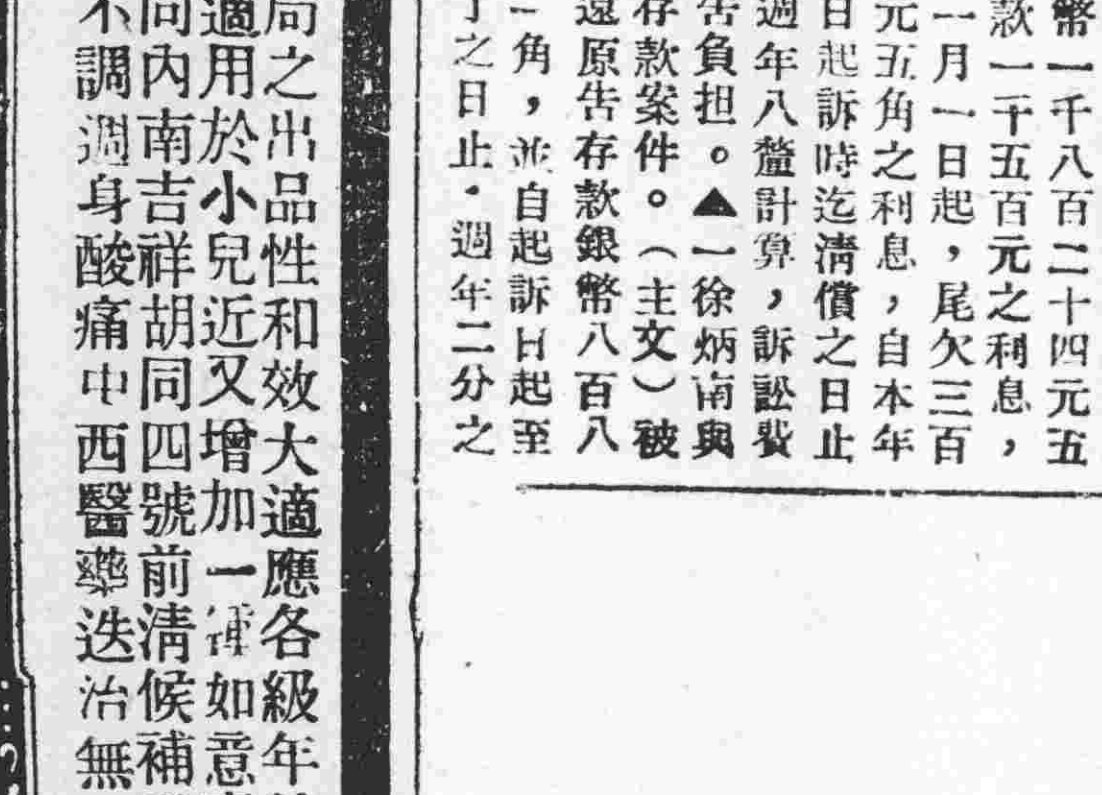 幣一千八百二十四元五
款一千五百元之利息，
一月一日起，尾欠三百
元五角之利息，自本年
日起訴時迄淸償之日止
週年八釐計算，訴訟費
告負担。▲一徐炳南與
存款案件。（主文）被
還原告存款銀幣八百八
一角，並自起訴日起至
了之日止．週年二分之
局之出品性和效大適應各級年
適用於小兒近又增加一種如意
同內南吉祥胡同四號前淸候補
不調週身酸痛中西醫藥迭治無